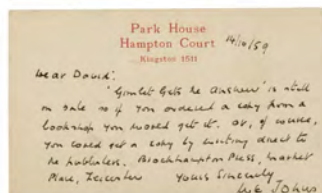 Park House
Hampton Court
Kingston 1511
14/10/59
Dear David:
'Gimlet Gets the Answer' is still
on sale so if you ordered a copy from a
bookshop you would get it. Or, of course,
you could get a copy by writing direct to
the publishers. Brockhampton Press, Market
Place, Leicester Yours Sincerely
Johns